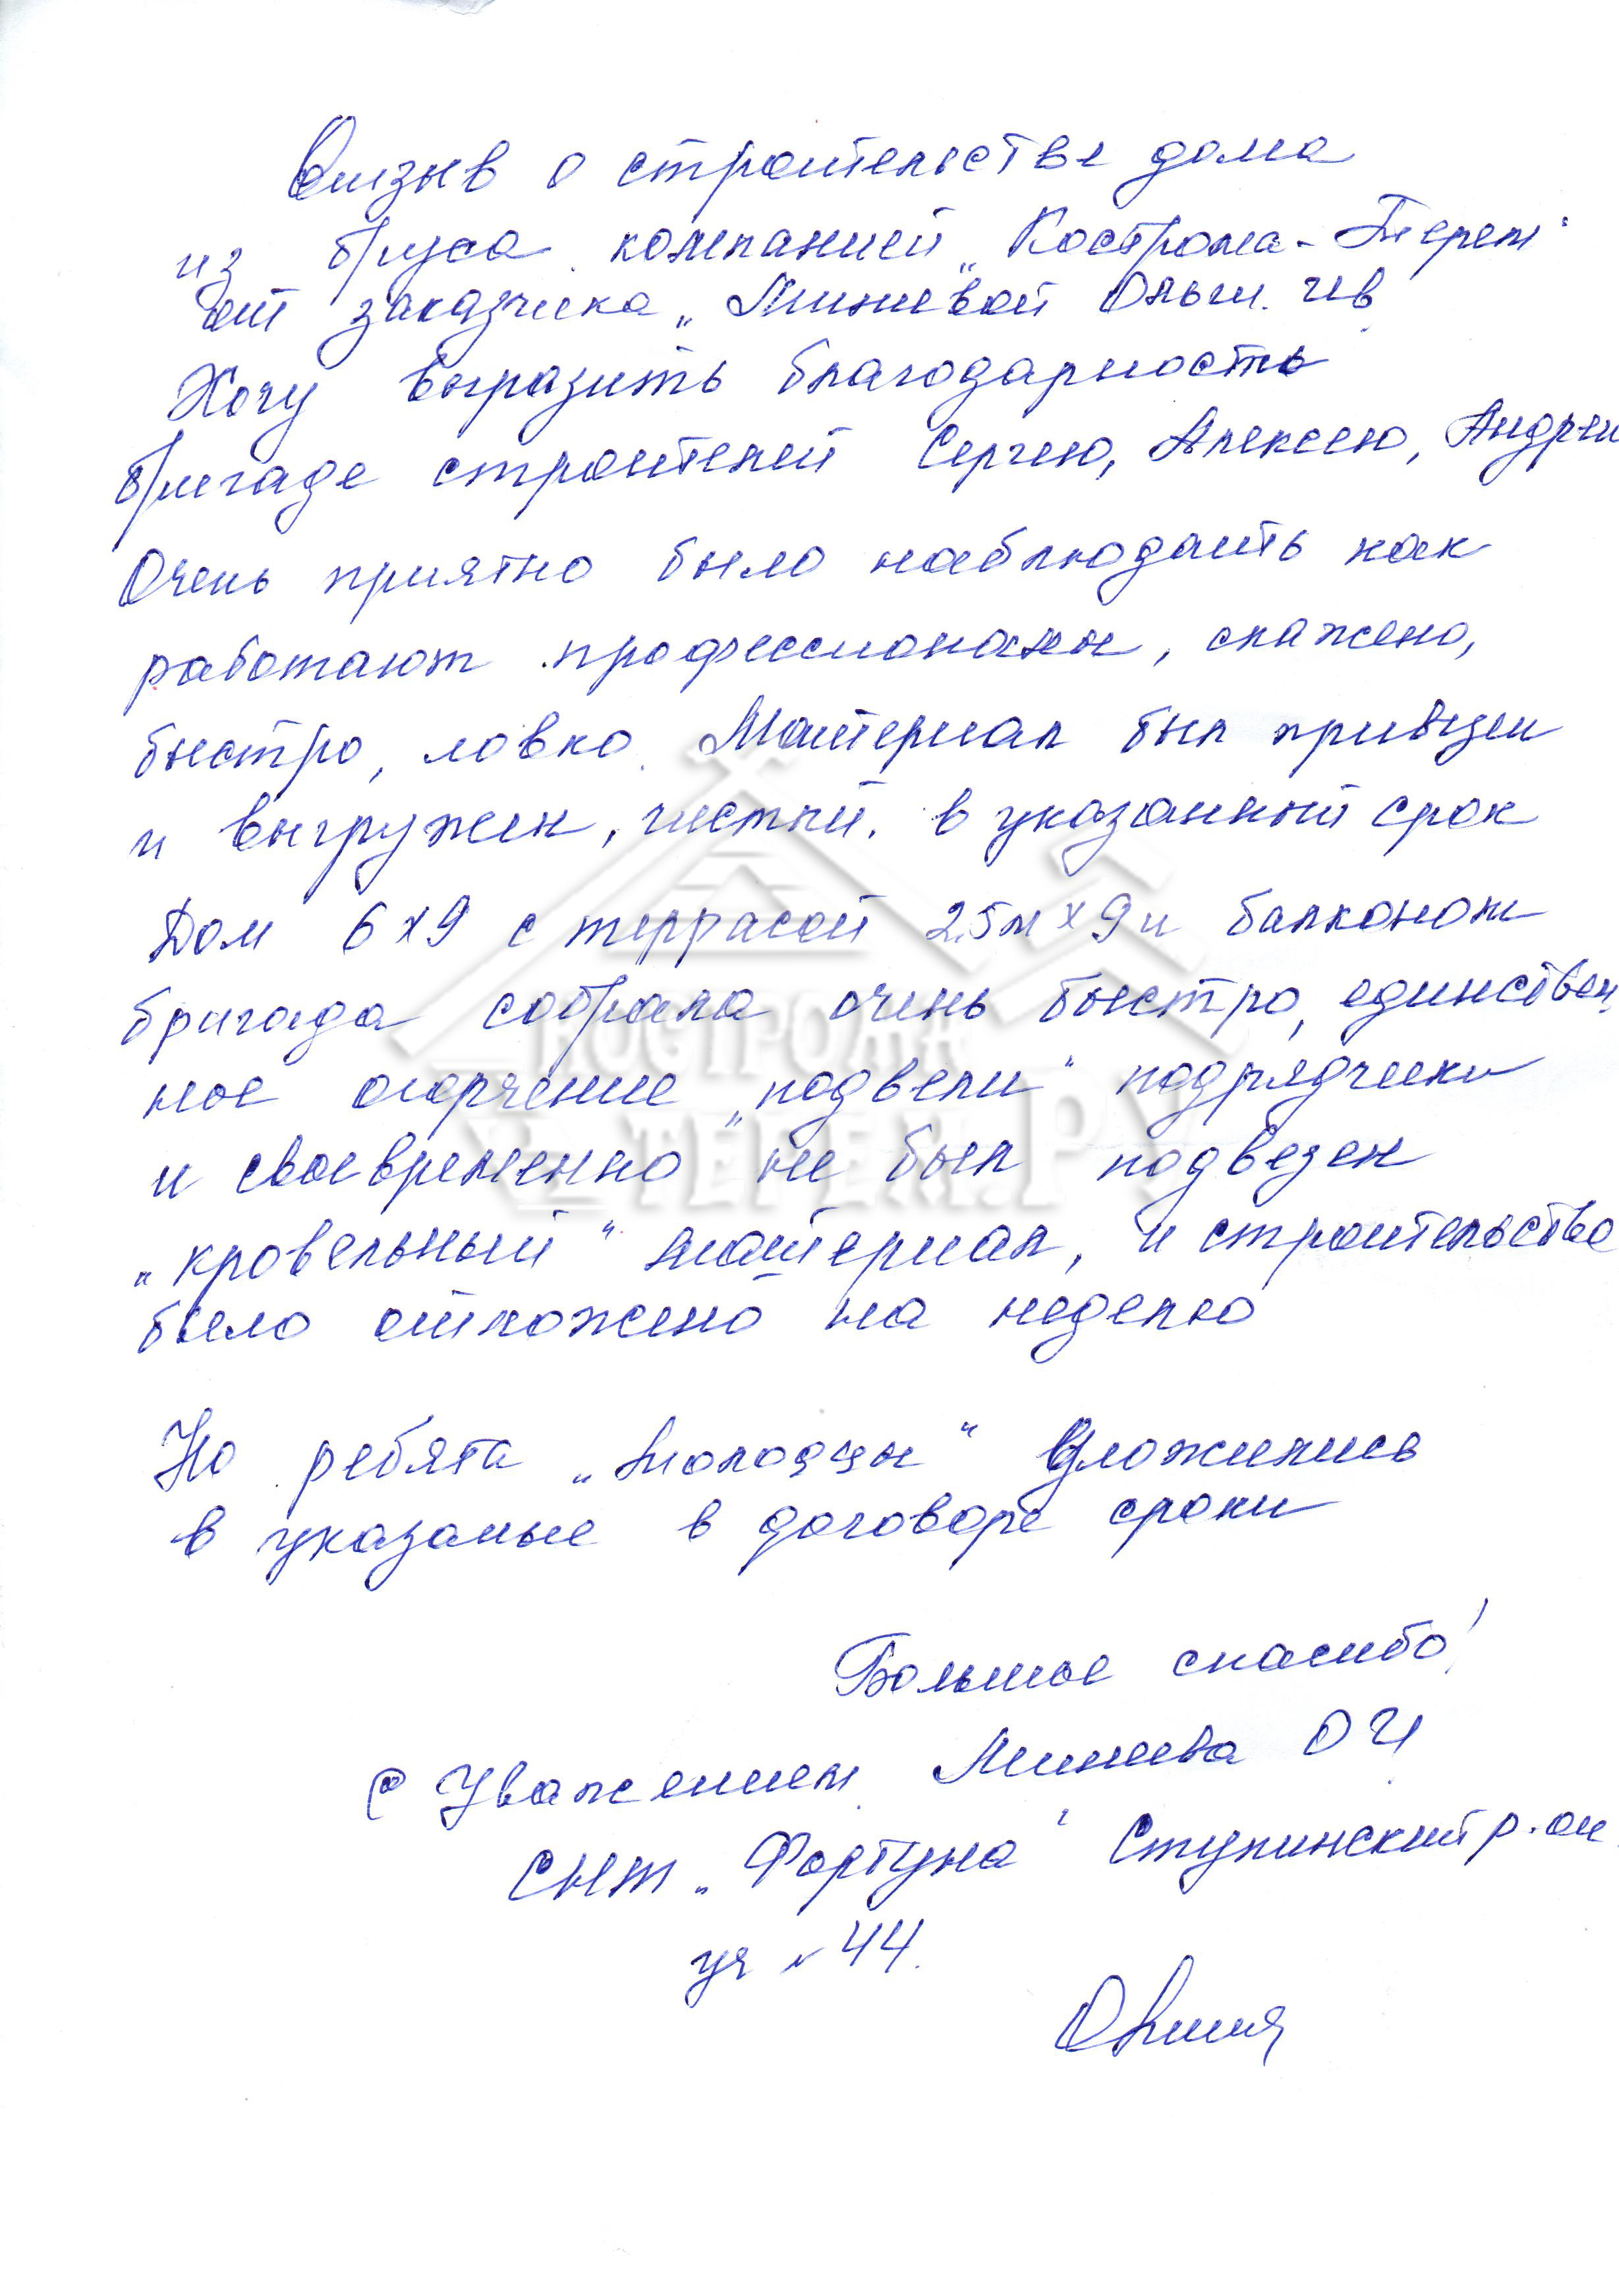 Отзыв о строительстве дома
из бруса компанией „Кострома-Терем"
от заказчика „Минеевой Ольги. Ив
Хочу выразить благодарность
бригаде строителей Сергею, Алексею, Андрею
Очень приятно было наблюдать как
работают профессионалы, слажено,
быстро, ловко. Материал был привезен
и выгружен, чистый. в указанный срок
Дом 6х9 с террасой 2,5м х 9 и балконом
бригада собрала очень быстро, единствен
ное огорчение „подвели" подрядчики
и своевременно не был подвезен
„кровельный" материал, и строительство
было отложено на неделю
Но ребята „молодцы" уложились
в указаные в договоре сроки
Большое спасибо!
С Уважением Минеева О И
СНТ „Фортуна" Ступинский р-он
уч № 44.
КОСТРОМА
ТЕРЕМ.РУ